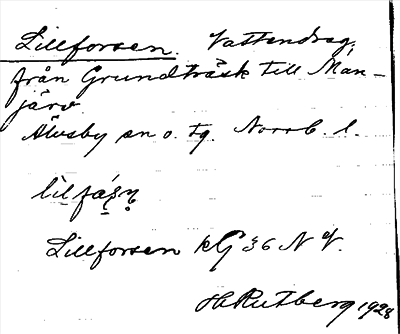 Lillforsen. Vattendrag,
från Grundträsk till Man-
järv
Älvsby sn o. tg. Norrb. l.
Lillforsen kG 36 NV.
H Rutberg 1928